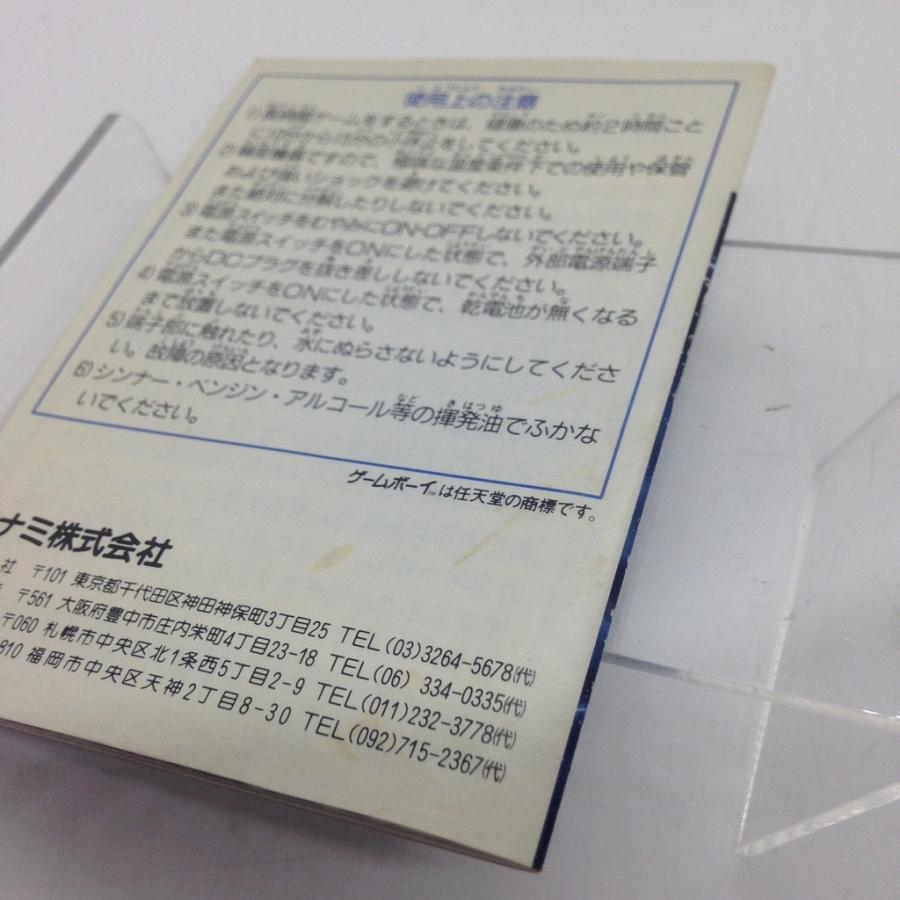 使用上の注意
1) 長時間ゲームをするときは、健康のため約2時間ごと
に10分から15分の小休止をしてください。
2) 精密機器ですので、極端な温度条件下での使用や保管
および強いショックを避けてください。
また絶対に分解したりしないでください。
3) 電源スイッチをむやみにON-OFFしないでください。
また電源スイッチをONにした状態で、外部電源端子
からDCプラグを抜き差ししないでください。
4) 電源スイッチをONにした状態で、乾電池が無くなる
まで放置しないでください。
5) 端子部に触れたり、水にぬらさないようにしてくださ
い。故障の原因となります。
6) シンナー・ベンジン・アルコール等の揮発油でふかな
いでください。
ゲームボーイ™は任天堂の商標です。
ナミ株式会社
社 〒101 東京都千代田区神田神保町3丁目25 TEL(03)3264-5678(代)
〒561 大阪府豊中市庄内栄町4丁目23-18 TEL(06) 334-0335(代)
〒060 札幌市中央区北1条西5丁目2-9 TEL(011)232-3778(代)
810 福岡市中央区天神2丁目8-30 TEL(092)715-2367(代)